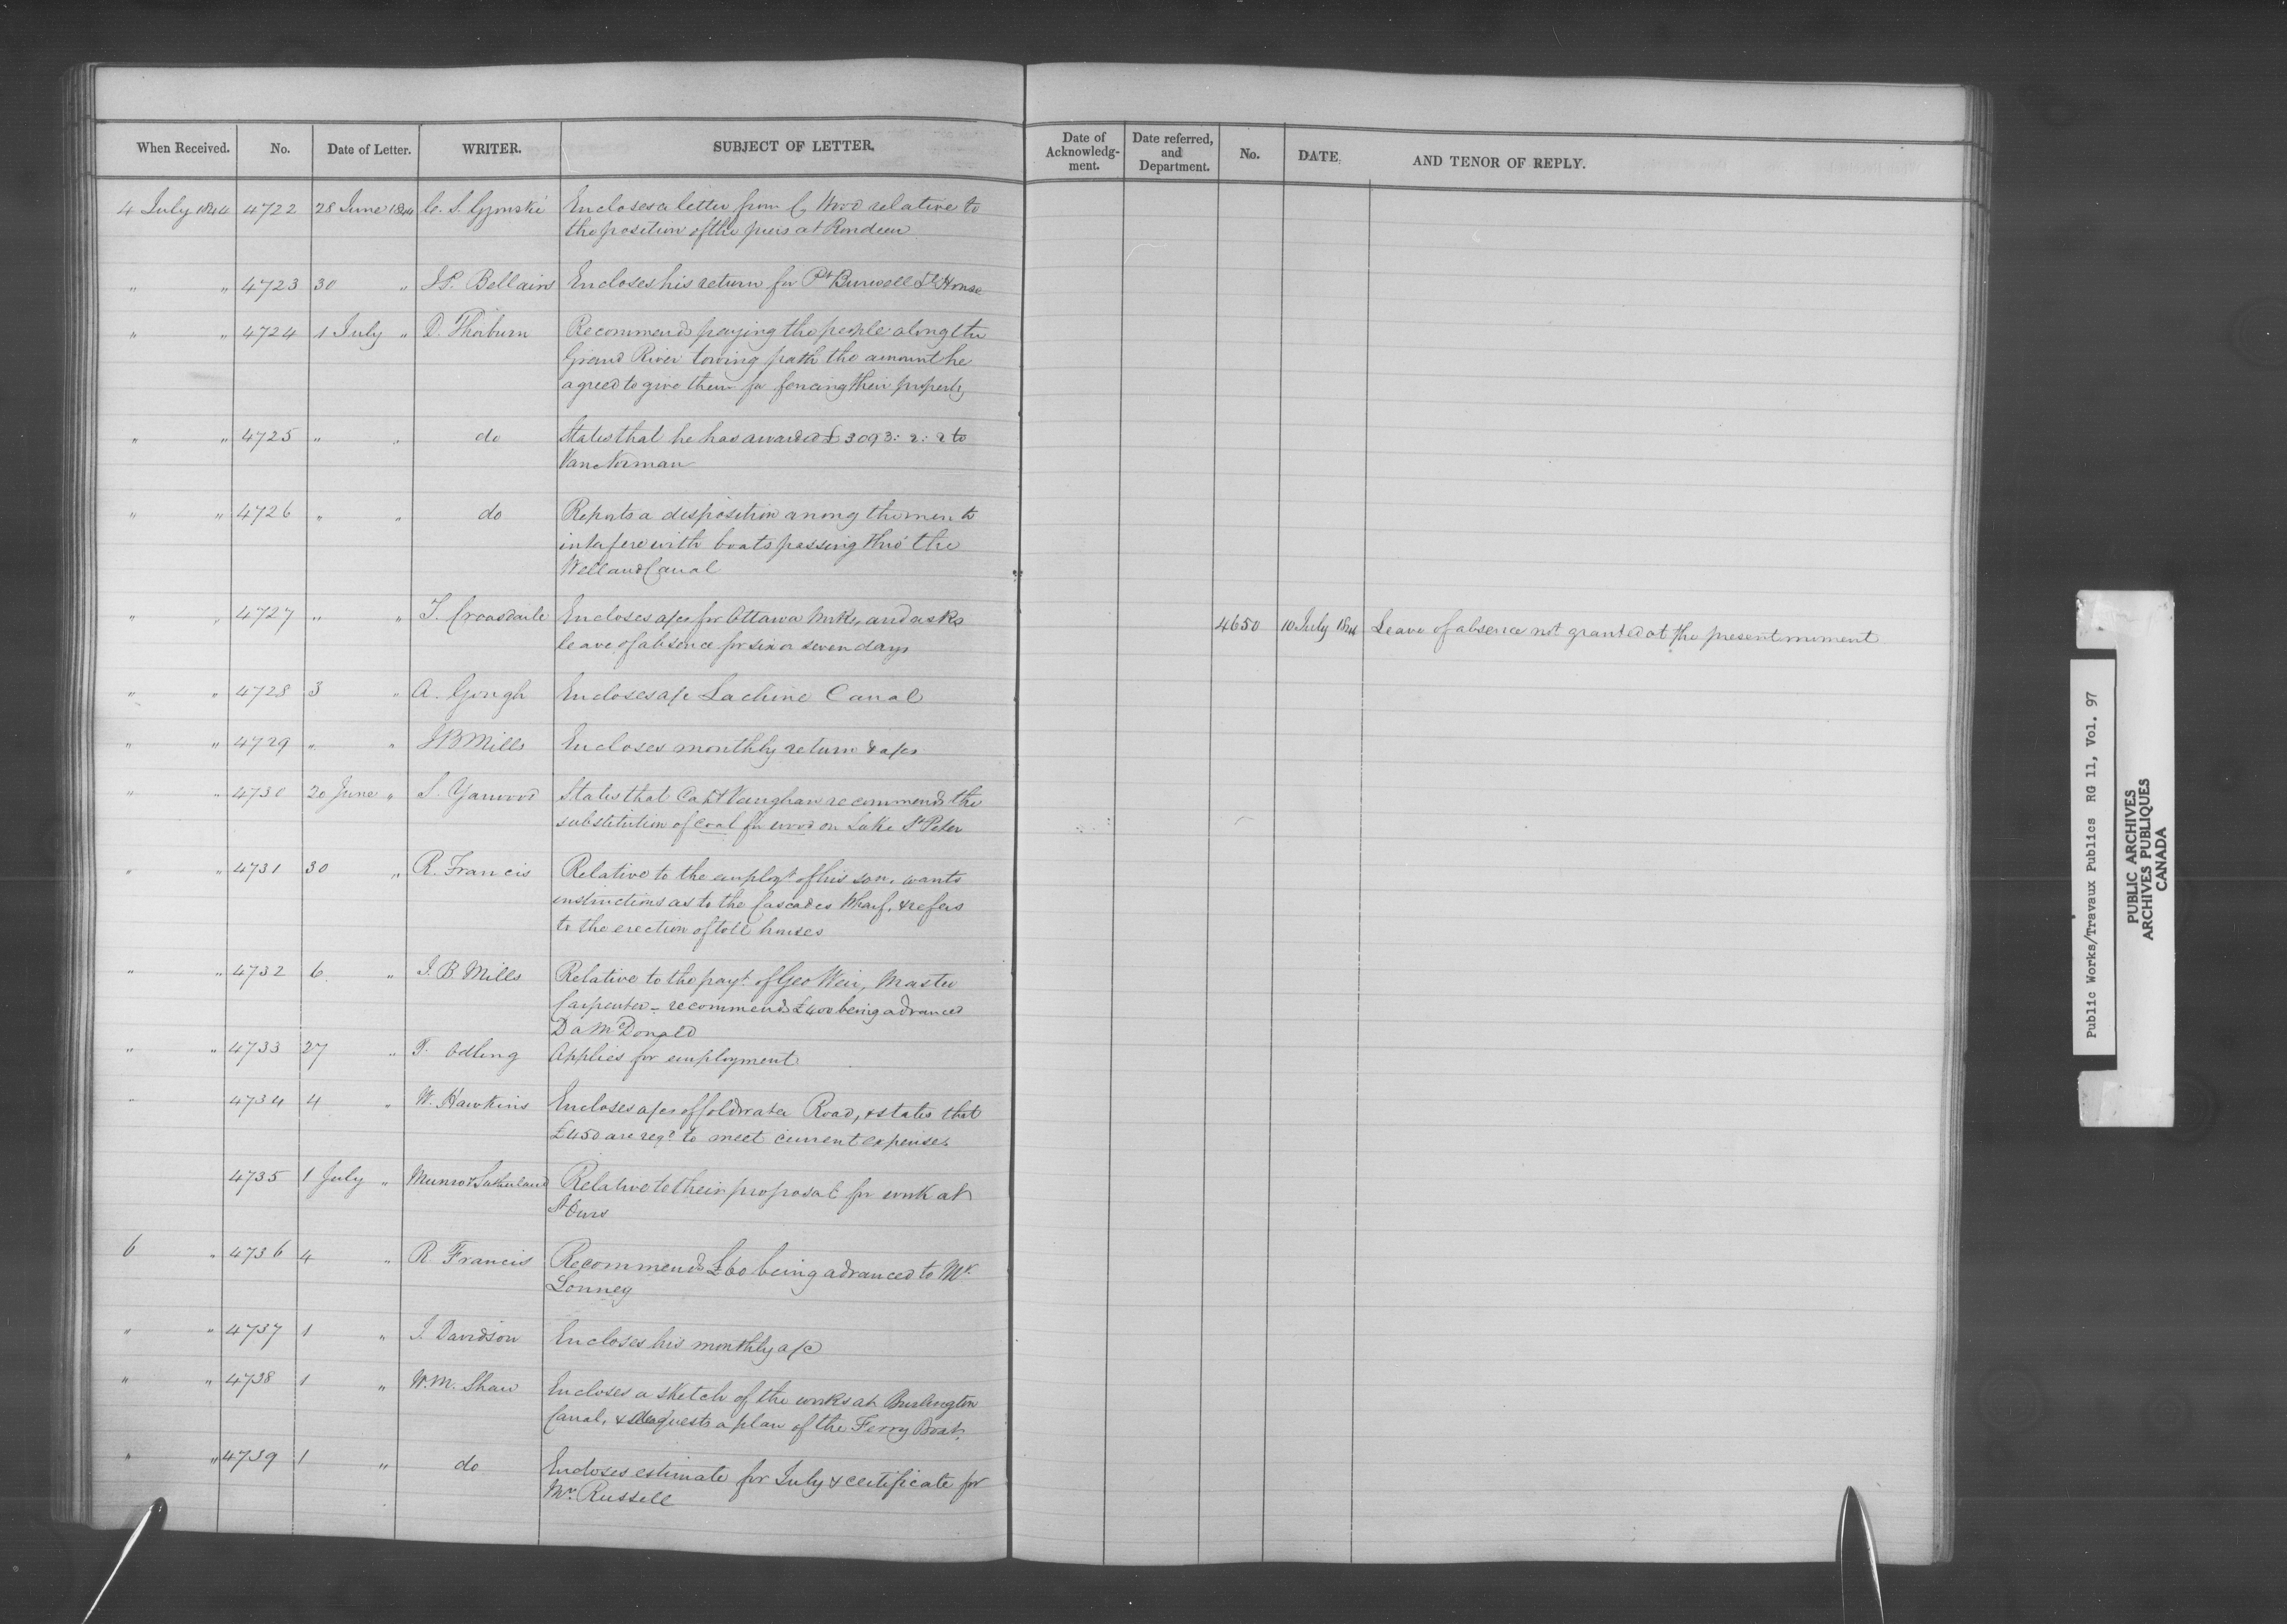 When Received. No. Date of Letter. WRITER. SUBJECT OF LETTER. Date of Acknowledg-ment. Date referred, and Department. No. DATE. AND TENOR OF REPLY.
4 July 1844 4722 28 June 1844 C. S. Gzowski Encloses a letter from C, Wood relative to
the position of the piers at Rondeau
" " 4723 30 " J P. Bellairs Encloses his return for Pt Burwell Lt House
" " 4724 1 July " D. Thorburn Recommends paying the people along the
Grand River towing path the amount he
agreed to give them for fencing their property
" " 4725 " " do States that he has awarded £3093: 2: 2 to
Van Norman
" " 4726 " " do Reports a disposition among the men to
interfere with boats passing thro' the
Welland Canal
" " 4727 " " T. Croasdaile Encloses a/cs for Ottawa Works, and asks 4650 10 July 1844 Leave of absence not granted at the present moment
leave of absence for six or seven days
" " 4728 3 " A. Gough Encloses a/c Lachine Canal
" " 4729 " " J B Mills Encloses monthly return & a/cs
" " 4730 20 June " S. Yarwood States that Capt Vaughan recommends the
substitution of coal for wood on Lake St Peter
" " 4731 30 " R. Francis Relative to the employt of his son, wants
instructions as to the Cascades Wharf, & refers
to the erection of toll houses
" " 4732 6 " J. B. Mills Relative to the payt. of Geo Weir, Master
Carpenter – recommends £400 being advanced
D A McDonald
" " 4733 27 " P. Odling Applies for employment
" 4734 4 " W. Hawkins Encloses a/cs of Coldwater Road, & states that
£450 are reqd to meet current expenses.
4735 1 July " Munro & Sutherland Relative to their proposal for work at
St Ours
6 " 4736 4 " R. Francis Recommends £60 being advanced to Mr.
Lonney
" " 4737 1 " J. Davidson Encloses his monthly a/c
" " 4738 1 " W. M. Shaw Encloses a sketch of the works at Burlington
Canal, & requests a plan of the Ferry Boat.
" " 4739 1 " do Encloses estimate for July & certificate for
Mr. Russell
Public Works/Travaux Publics RG 11, Vol. 97
PUBLIC ARCHIVES
ARCHIVES PUBLIQUES
CANADA